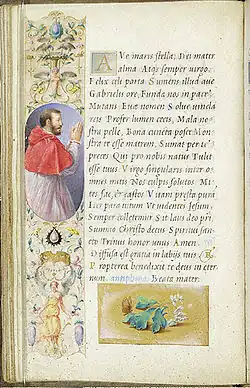 AVe maris stella, Dei mater
alma Atq; semper virgo,
Felix cęli porta Sumens illud aue
Gabrielis ore, Funda nos in pace
Mutans Euæ nomen Solue uincla
reis Profer lumen cęcis, Mala no
stra pelle, Bona cuncta posce Mon
stra te esse matrem, Sumat per te
preces Qui pro nobis natus Tulit
esse tuus Virgo singularis inter o
mnes mitis Nos culpis solutos Mi
tes fac, et castos Vitam presta puram
Iter para tutum Vt uidentes Jesum,
Semper colletemur Sit laus deo pri
Summo Christo decus Spiritui san
cto Tribus honor unus Amen.
Diffusa est gratia in labijs tuis ℞
Propterea benedixit te deus in eter
num antiphona. Beata mater.